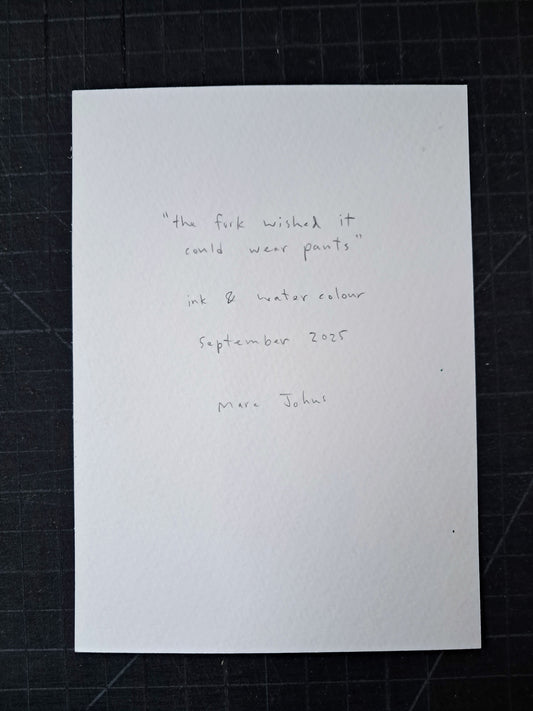 "the fork wished it
could wear pants"
ink & watercolour
September 2025
Marc Johns